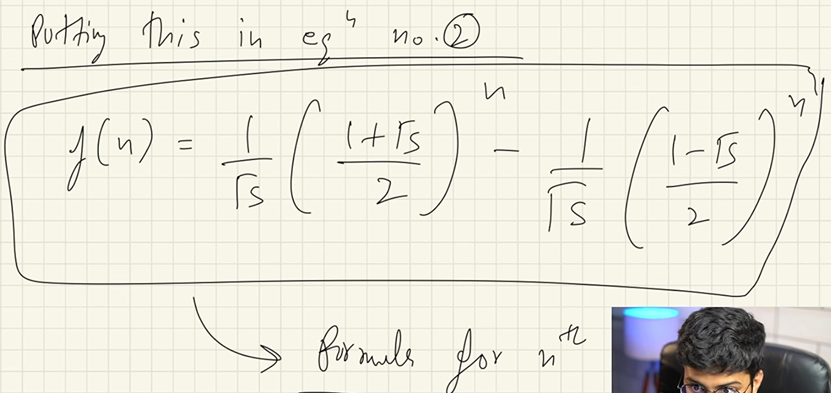 Putting this in eqⁿ no. ②
f(n) = 1/√5 ((1+√5)/2)ⁿ - 1/√5 ((1-√5)/2)ⁿ
formula for nᵗʰ